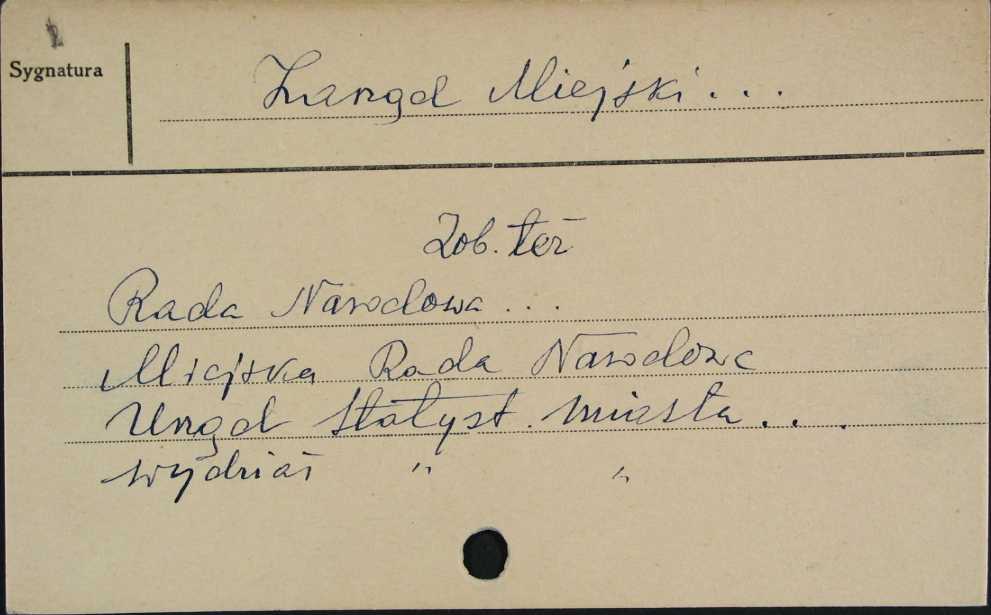 Z
Sygnatura
Zarząd Miejski...
Zob. też
Rada Narodowa...
Miejska Rada Narodowa
Urząd Statyst. miasta...
Wydział " "